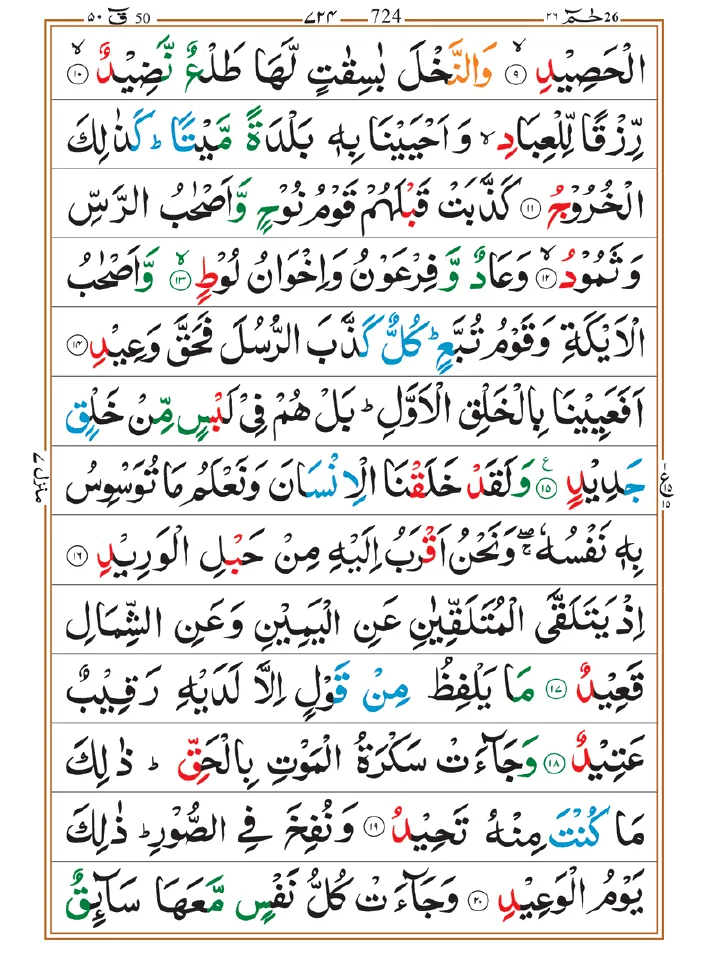 50 قٓ ۵۰ ۷۲۴ 724 حٰمٓ 26 ۲۶
الْحَصِيْدِ ۙ‏﴿۹﴾ وَالنَّخْلَ بٰسِقٰتٍ لَّهَا طَلْعٌ نَّضِيْدٌ ۙ‏﴿۱۰﴾
رِّزْقًا لِّلْعِبَادِ ۙ وَاَحْيَيْنَا بِهٖ بَلْدَةً مَّيْتًا ؕ كَذٰلِكَ
الْخُرُوْجُ ﴿۱۱﴾ كَذَّبَتْ قَبْلَهُمْ قَوْمُ نُوْحٍ وَّاَصْحٰبُ الرَّسِّ
وَثَمُوْدُ ۙ‏﴿۱۲﴾ وَعَادٌ وَّفِرْعَوْنُ وَاِخْوَانُ لُوْطٍ ۙ‏﴿۱۳﴾ وَّاَصْحٰبُ
الْاَيْكَةِ وَقَوْمُ تُبَّعٍ ؕ كُلٌّ كَذَّبَ الرُّسُلَ فَحَقَّ وَعِيْدِ ﴿۱۴﴾
اَفَعَيِيْنَا بِالْخَلْقِ الْاَوَّلِ ؕ بَلْ هُمْ فِيْ لَبْسٍ مِّنْ خَلْقٍ
جَدِيْدٍ ﴿۱۵﴾ ع وَلَقَدْ خَلَقْنَا الْاِنْسَانَ وَنَعْلَمُ مَا تُوَسْوِسُ
بِهٖ نَفْسُهٗ ۖۚ وَنَحْنُ اَقْرَبُ اِلَيْهِ مِنْ حَبْلِ الْوَرِيْدِ ﴿۱۶﴾
اِذْ يَتَلَقَّى الْمُتَلَقِّيٰنِ عَنِ الْيَمِيْنِ وَعَنِ الشِّمَالِ
قَعِيْدٌ ﴿۱۷﴾ مَا يَلْفِظُ مِنْ قَوْلٍ اِلَّا لَدَيْهِ رَقِيْبٌ
عَتِيْدٌ ﴿۱۸﴾ وَجَآءَتْ سَكْرَةُ الْمَوْتِ بِالْحَقِّ ؕ ذٰلِكَ
مَا كُنْتَ مِنْهُ تَحِيْدُ ﴿۱۹﴾ وَنُفِخَ فِي الصُّوْرِ ؕ ذٰلِكَ
يَوْمُ الْوَعِيْدِ ﴿۲۰﴾ وَجَآءَتْ كُلُّ نَفْسٍ مَّعَهَا سَآئِقٌ
ع ۱۵ ۱۵
منزل ۷